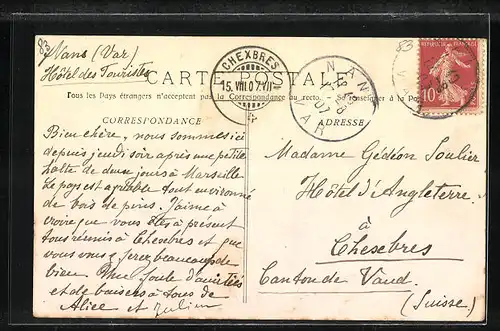 83
Nans (Var)
Hôtel des Touristes
CARTE POSTALE
Tous les Pays étrangers n'acceptent pas la Correspondance au recto. Se renseigner à la Po
CORRESPONDANCE
Bien chère, nous sommes ici
depuis jeudi soir après une petite
halte de deux jours à Marseille
Le pays est agréable tout environné
de bois de pins. J'aime à
croire que vous êtes à présent
tous réunis à Chesebres et que
vous vous ferez beaucoup de
bien Une foule d'amitiés
et de baisers à tous de
Alice et Julien
CHEXBRES
15. VIII. 07. VII
NAN
VAR
REPUBLIQUE FRANCAISE
10
ADRESSE
Madame Gédéon Soulier
Hôtel d'Angleterre
à
Chesebres
Canton de Vaud.
(Suisse)